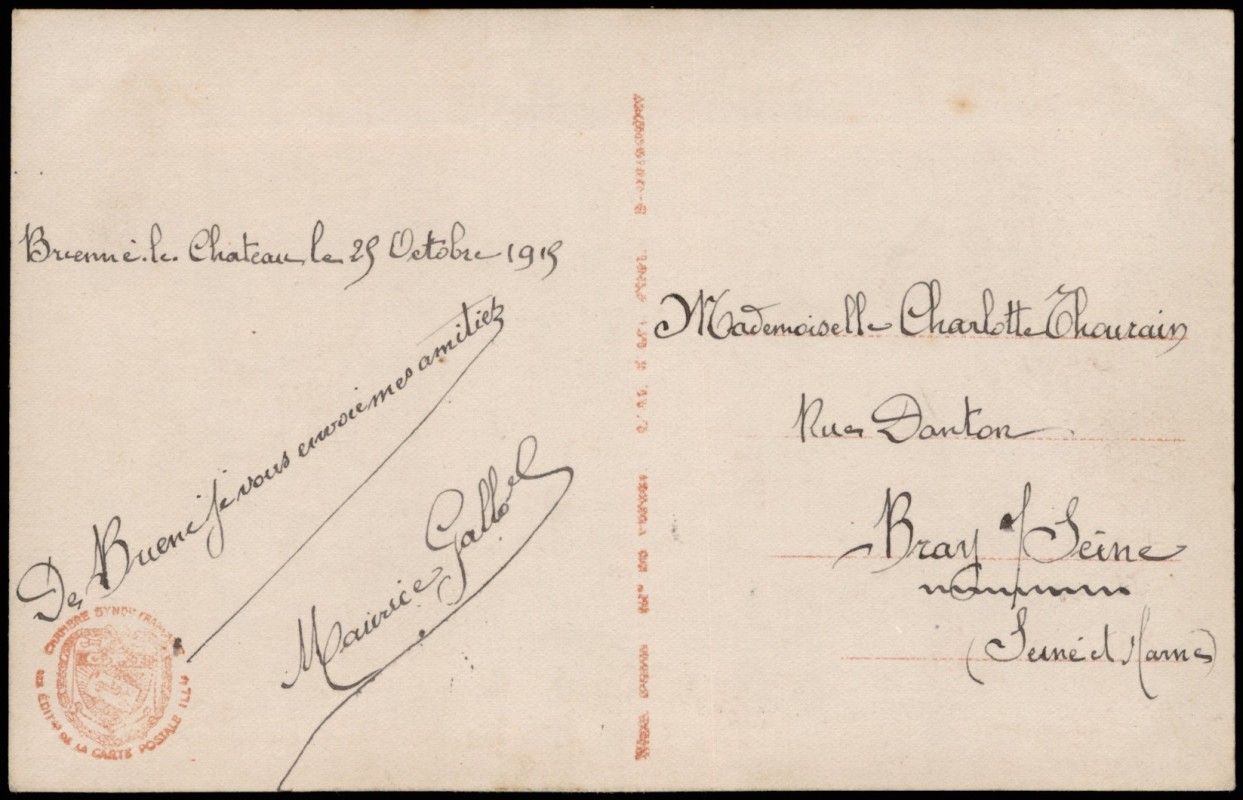 Brienne-le-Chateau, le 25 Octobre 1915
De Brienne je vous envoie mes amitiez
Maurice Gallo
CHAMBRE SYNDle FRANÇAISE
DES ÉDITrs DE LA CARTE POSTALE ILLée
Mademoiselle Charlotte Thourain
Rue Danton
Bray s/ Seine
(Seine et Marne)